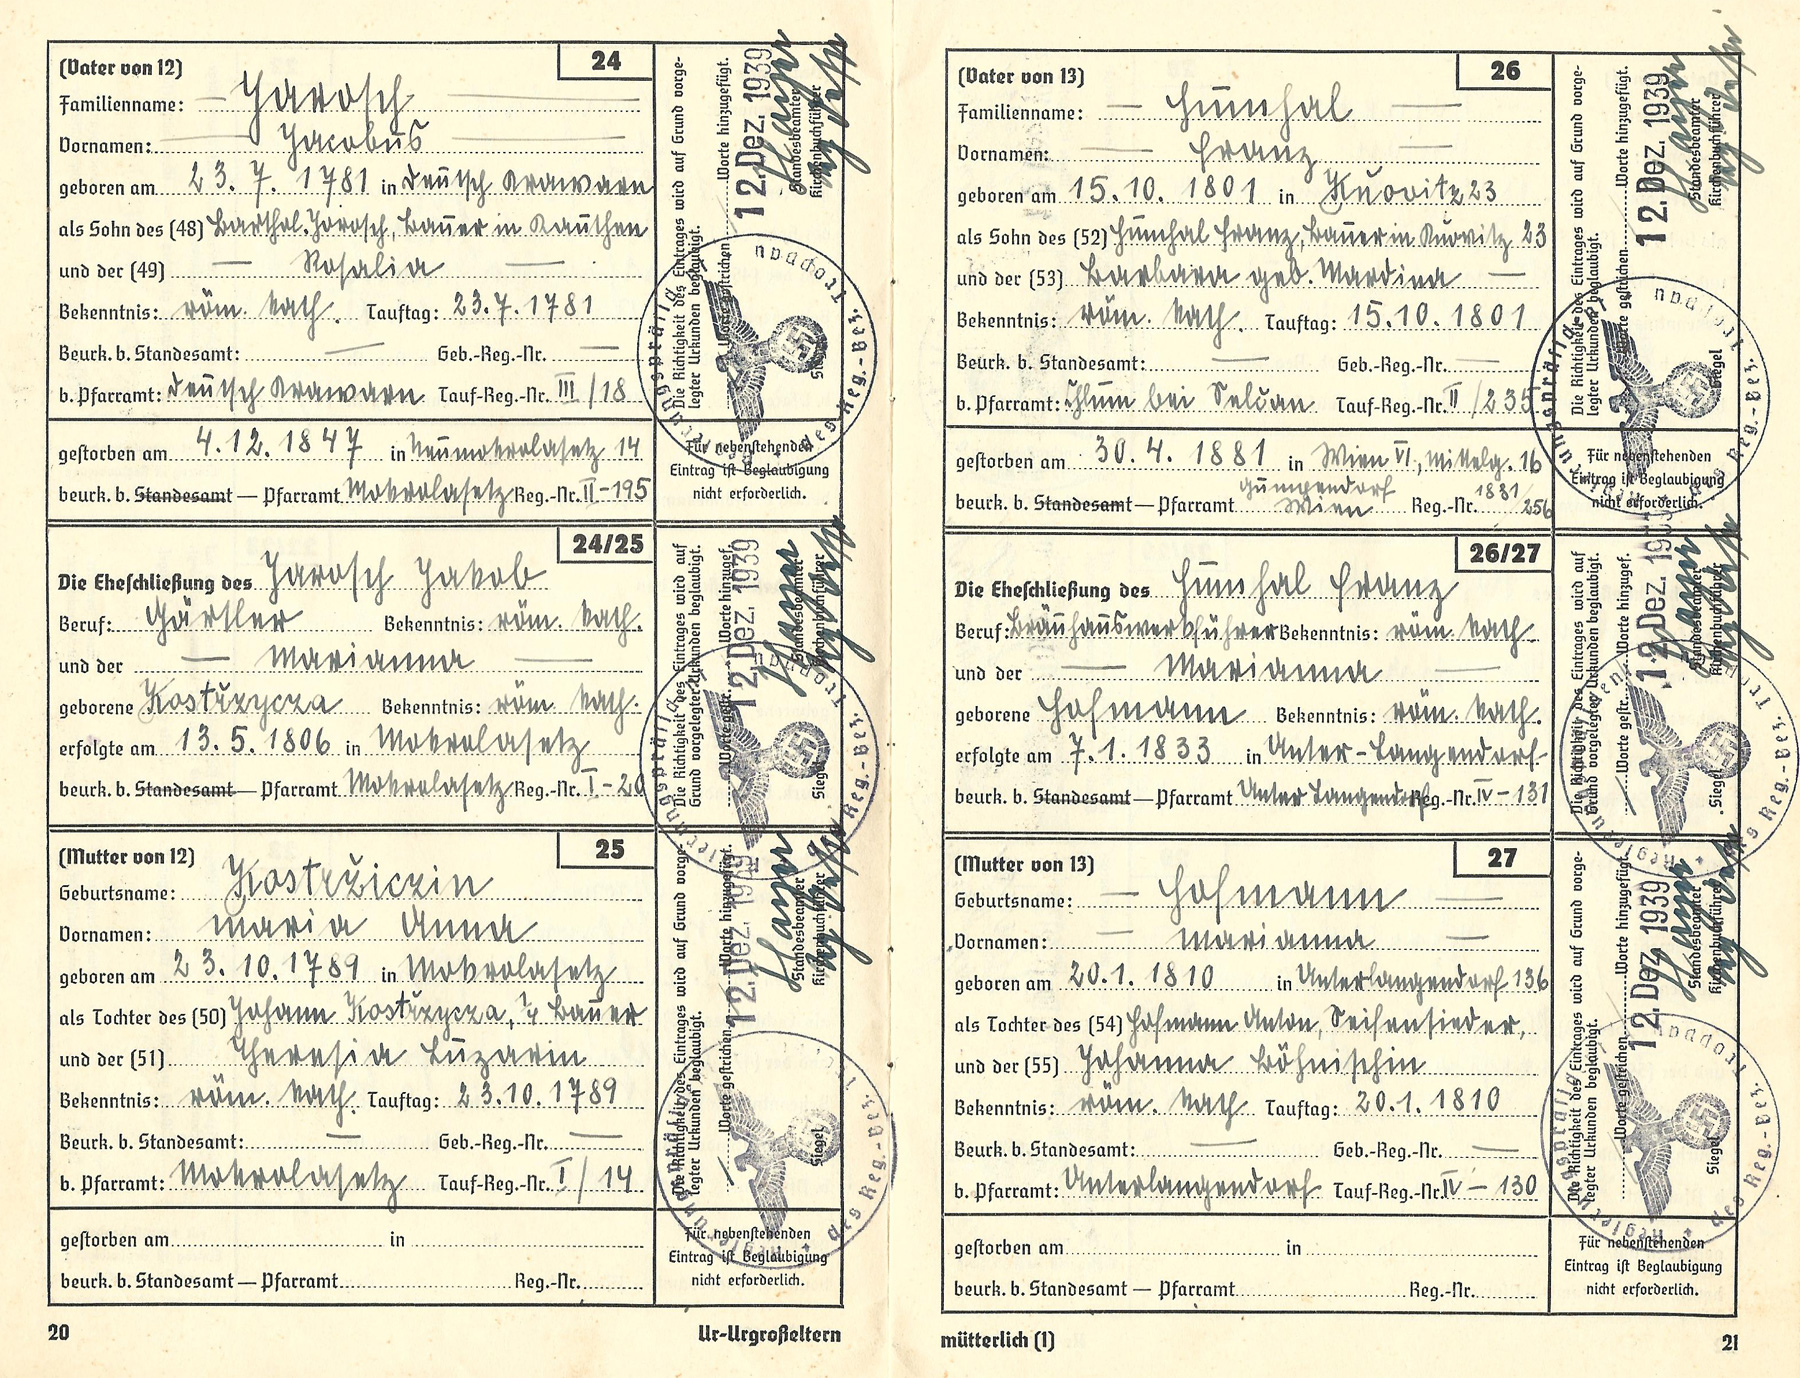 (Vater von 12) 24
Familienname: — Jarosch —
Vornamen: — Jacobus —
geboren am 23. 7. 1781 in Deutsch Krawarn
als Sohn des (48) Barthol. Jarosch, Bauer in Kauthen
und der (49) — Rosalia —
Bekenntnis: röm. kath. Tauftag: 23.7.1781
Beurk. b. Standesamt: — Geb.-Reg.-Nr. —
b. Pfarramt: Deutsch Krawarn Tauf-Reg.-Nr. III / 18
gestorben am 4.12.1847 in Neumokrolasetz 14
beurk. b. Standesamt — Pfarramt Mokrolasetz Reg.-Nr. II-195
Die Richtigkeit des Eintrages wird auf Grund vorge-
legter Urkunden beglaubigt.
Worte gestrichen Worte hinzugefügt.
12. Dez. 1939
Standesbeamter
Kirchenbuchführer
Siegel
Für nebenstehenden
Eintrag ist Beglaubigung
nicht erforderlich.
24/25
Die Eheschließung des Jarosch Jakob
Beruf: Gärtler Bekenntnis: röm. kath.
und der — Marianna —
geborene Kostřzycza Bekenntnis: röm. kath.
erfolgte am 13. 5. 1806 in Mokrolasetz
beurk. b. Standesamt — Pfarramt Mokrolasetz Reg.-Nr. I-20
Die Richtigkeit des Eintrages wird auf
Grund vorgelegter Urkunden beglaubigt.
Worte gestr. Worte hinzugef.
12. Dez. 1939
Standesbeamter
Kirchenbuchführer
Siegel
(Mutter von 12) 25
Geburtsname: Kostržiczin
Vornamen: Maria Anna
geboren am 23.10.1789 in Mokrolasetz
als Tochter des (50) Johann Kostřzycza, 1/4 Bauer
und der (51) Theresia Luzarin
Bekenntnis: röm. kath. Tauftag: 23.10.1789
Beurk. b. Standesamt: — Geb.-Reg.-Nr. —
b. Pfarramt: Mokrolasetz Tauf-Reg.-Nr. I / 14
gestorben am in
beurk. b. Standesamt — Pfarramt Reg.-Nr.
Die Richtigkeit des Eintrages wird auf Grund vorge-
legter Urkunden beglaubigt.
Worte gestrichen Worte hinzugefügt.
12. Dez. 1939
Standesbeamter
Kirchenbuchführer
Siegel
Für nebenstehenden
Eintrag ist Beglaubigung
nicht erforderlich.
20 Ur-Urgroßeltern
(Vater von 13) 26
Familienname: — Humhal —
Vornamen: — Franz —
geboren am 15.10.1801 in Kuovitz 23
als Sohn des (52) Humhal Franz, Bauer in Kuovitz 23
und der (53) Barbara geb. Mardina —
Bekenntnis: röm. kath. Tauftag: 15.10.1801
Beurk. b. Standesamt: — Geb.-Reg.-Nr. —
b. Pfarramt: Chlum bei Selcan Tauf-Reg.-Nr. II / 235
gestorben am 30. 4. 1881 in Wien VI, Mittelg. 16
beurk. b. Standesamt — Pfarramt Gumpendorf Wien Reg.-Nr. 1881/256
Die Richtigkeit des Eintrages wird auf Grund vorge-
legter Urkunden beglaubigt.
Worte gestrichen Worte hinzugefügt.
12. Dez. 1939
Standesbeamter
Kirchenbuchführer
Siegel
Für nebenstehenden
Eintrag ist Beglaubigung
nicht erforderlich.
26/27
Die Eheschließung des Humhal Franz
Beruf: Bräuhauswerkführer Bekenntnis: röm. kath.
und der — Marianna —
geborene Hofmann Bekenntnis: röm. kath.
erfolgte am 7.1.1833 in Unter-Langendorf
beurk. b. Standesamt — Pfarramt Unter Langendorf Reg.-Nr. IV-131
Die Richtigkeit des Eintrages wird auf
Grund vorgelegter Urkunden beglaubigt.
Worte gestr. Worte hinzugef.
12. Dez. 1939
Standesbeamter
Kirchenbuchführer
Siegel
(Mutter von 13) 27
Geburtsname: — Hofmann —
Vornamen: — Marianna —
geboren am 20.1.1810 in Unterlangendorf 136
als Tochter des (54) Hofmann Anton, Seifensieder,
und der (55) Johanna Böhnischin
Bekenntnis: röm. kath. Tauftag: 20.1.1810
Beurk. b. Standesamt: — Geb.-Reg.-Nr. —
b. Pfarramt: Unterlangendorf Tauf-Reg.-Nr. IV — 130
gestorben am in
beurk. b. Standesamt — Pfarramt Reg.-Nr.
Die Richtigkeit des Eintrages wird auf Grund vorge-
legter Urkunden beglaubigt.
Worte gestrichen Worte hinzugefügt.
12. Dez. 1939
Standesbeamter
Kirchenbuchführer
Siegel
Für nebenstehenden
Eintrag ist Beglaubigung
nicht erforderlich.
mütterlich (1) 21